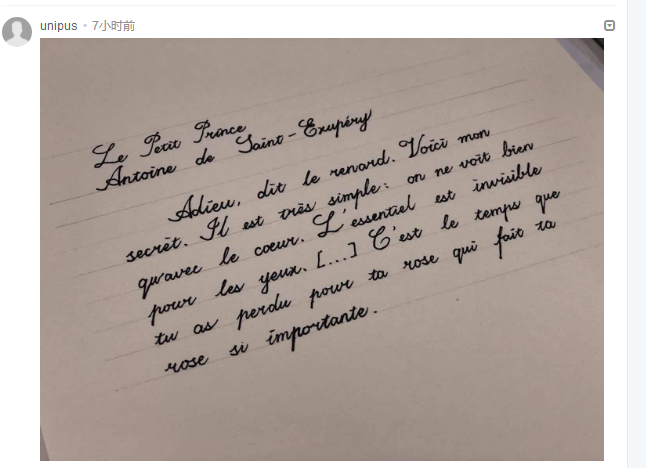 unipus • 7小时前
Le Petit Prince
Antoine de Saint-Exupéry
Adieu, dit le renard. Voici mon
secrèt. Il est très simple: on ne voit bien
qu'avec le cœur. L'essentiel est invisible
pour les yeux. [...] C'est le temps que
tu as perdu pour ta rose qui fait ta
rose si importante.